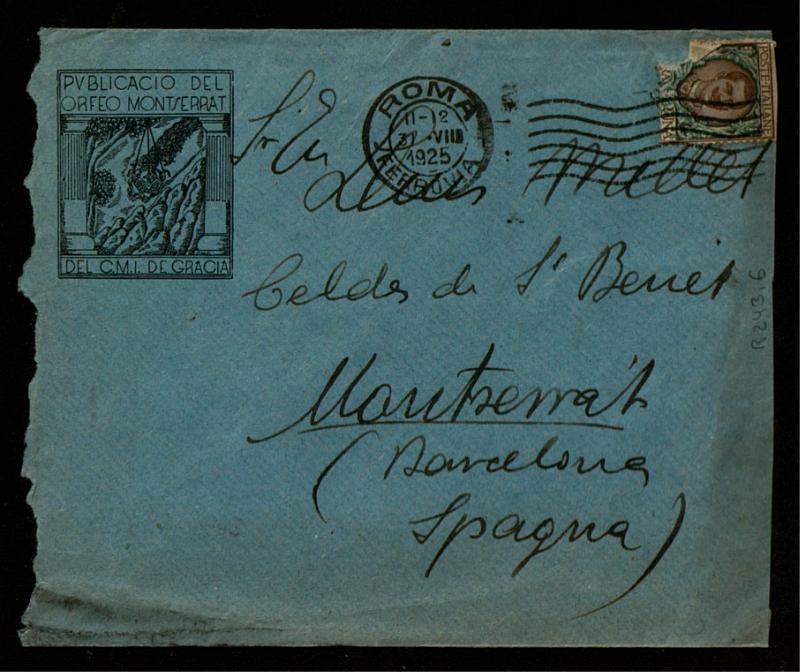 PVBLICACIO DEL
ORFEO MONTSERRAT
DEL C.M.I. DE GRACIA
ROMA
11-12
31 VIII
1925
FERROVIA
POSTE ITALIANE
Sr. En
Lluis Millet
Celdes de St Benet
Montserrat
(Barcelona
Spagna)
R24316